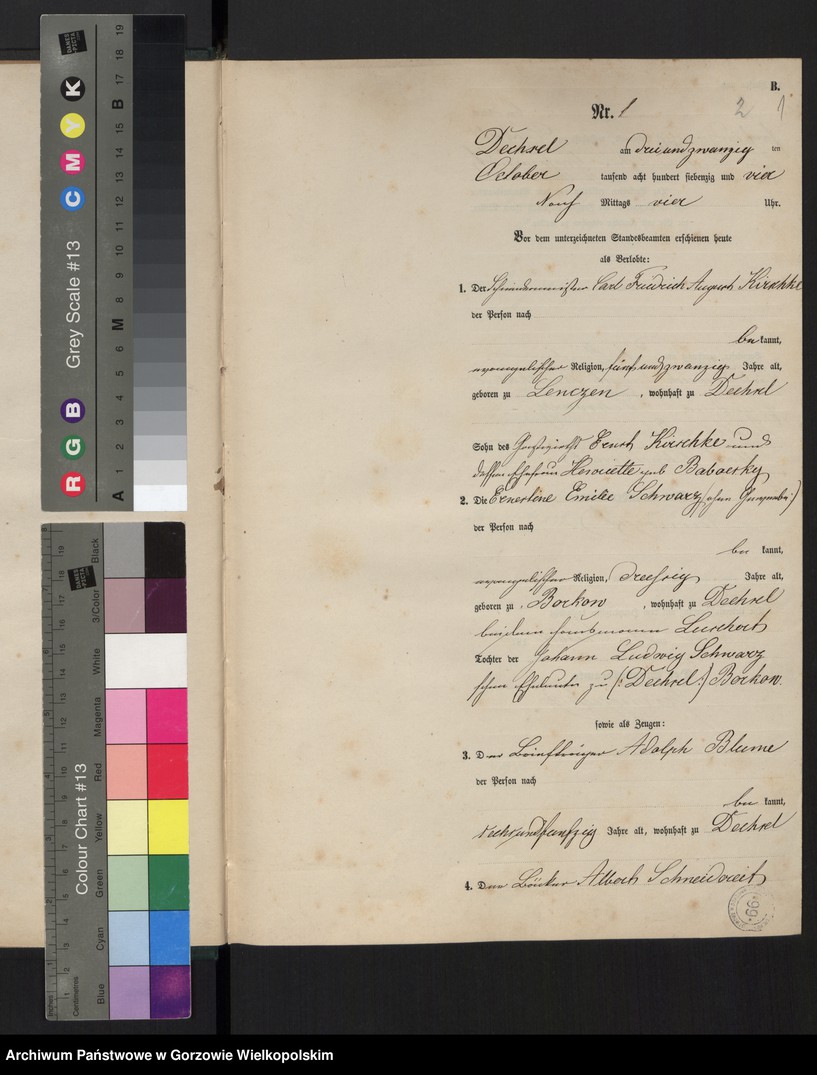 B.
Nr. 1
2 1
Dechsel am dreiundzwanzig ten
October tausend acht hundert siebenzig und vier
Nach Mittags vier Uhr.
Vor dem unterzeichneten Standesbeamten erschienen heute
als Verlobte:
1. Der Schneidermeister Carl Friedrich August Kirschke
der Person nach
be kannt,
evangelischer Religion, fünf und zwanzig Jahre alt,
geboren zu Lenczen, wohnhaft zu Dechsel
Sohn des Gastwirths Ernst Kirschke und
dessen Ehefrau Henriette geb
2. Die Ernestine Emilie Schwarz (ohne Gewerbe)
der Person nach
be kannt,
evangelischer Religion, dreißig Jahre alt,
geboren zu Borkow, wohnhaft zu Dechsel
bei dem
Tochter der Johann Ludwig Schwarz
schen Eheleute zu (: Dechsel :) Borkow.
sowie als Zeugen:
3. Der Briefträger Adolph Blume
der Person nach
be kannt,
Jahre alt, wohnhaft zu Dechsel
4. Der Bäcker Albert
99
Grey Scale #13
DANES PICTA
C M Y K
R G B
A 1 2 3 4 5 6 M 8 9 10 11 12 13 14 15 B 17 18 19
Colour Chart #13
DANES PICTA
Blue Cyan Green Yellow Red Magenta White 3/Color Black
Inches
Centimetres
Archiwum Państwowe w Gorzowie Wielkopolskim